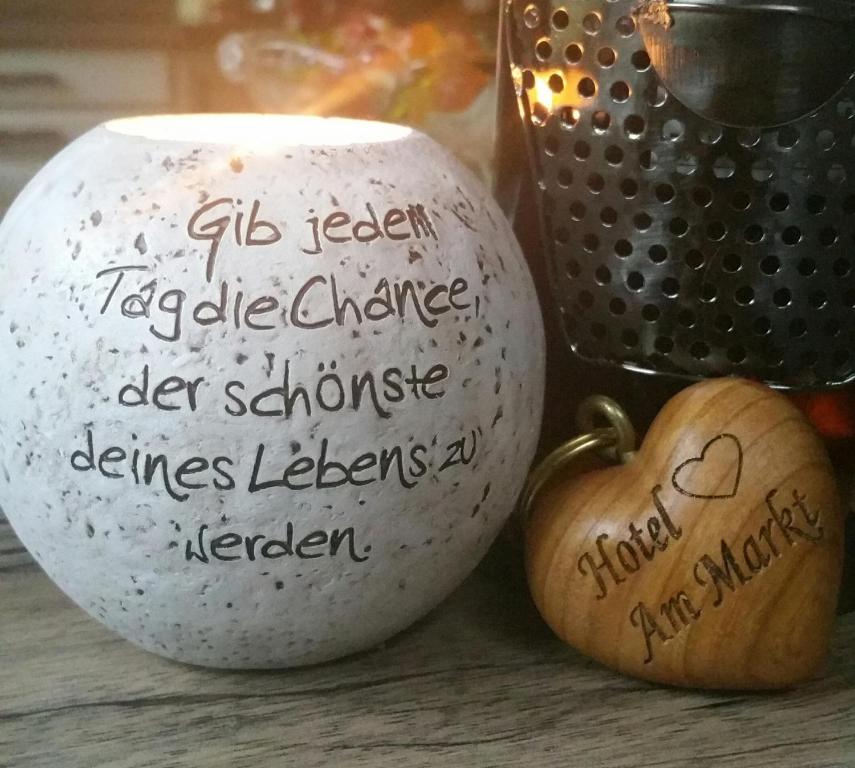 Gib jedem
Tag die Chance,
der schönste
deines Lebens zu
werden.
Hotel
Am Markt